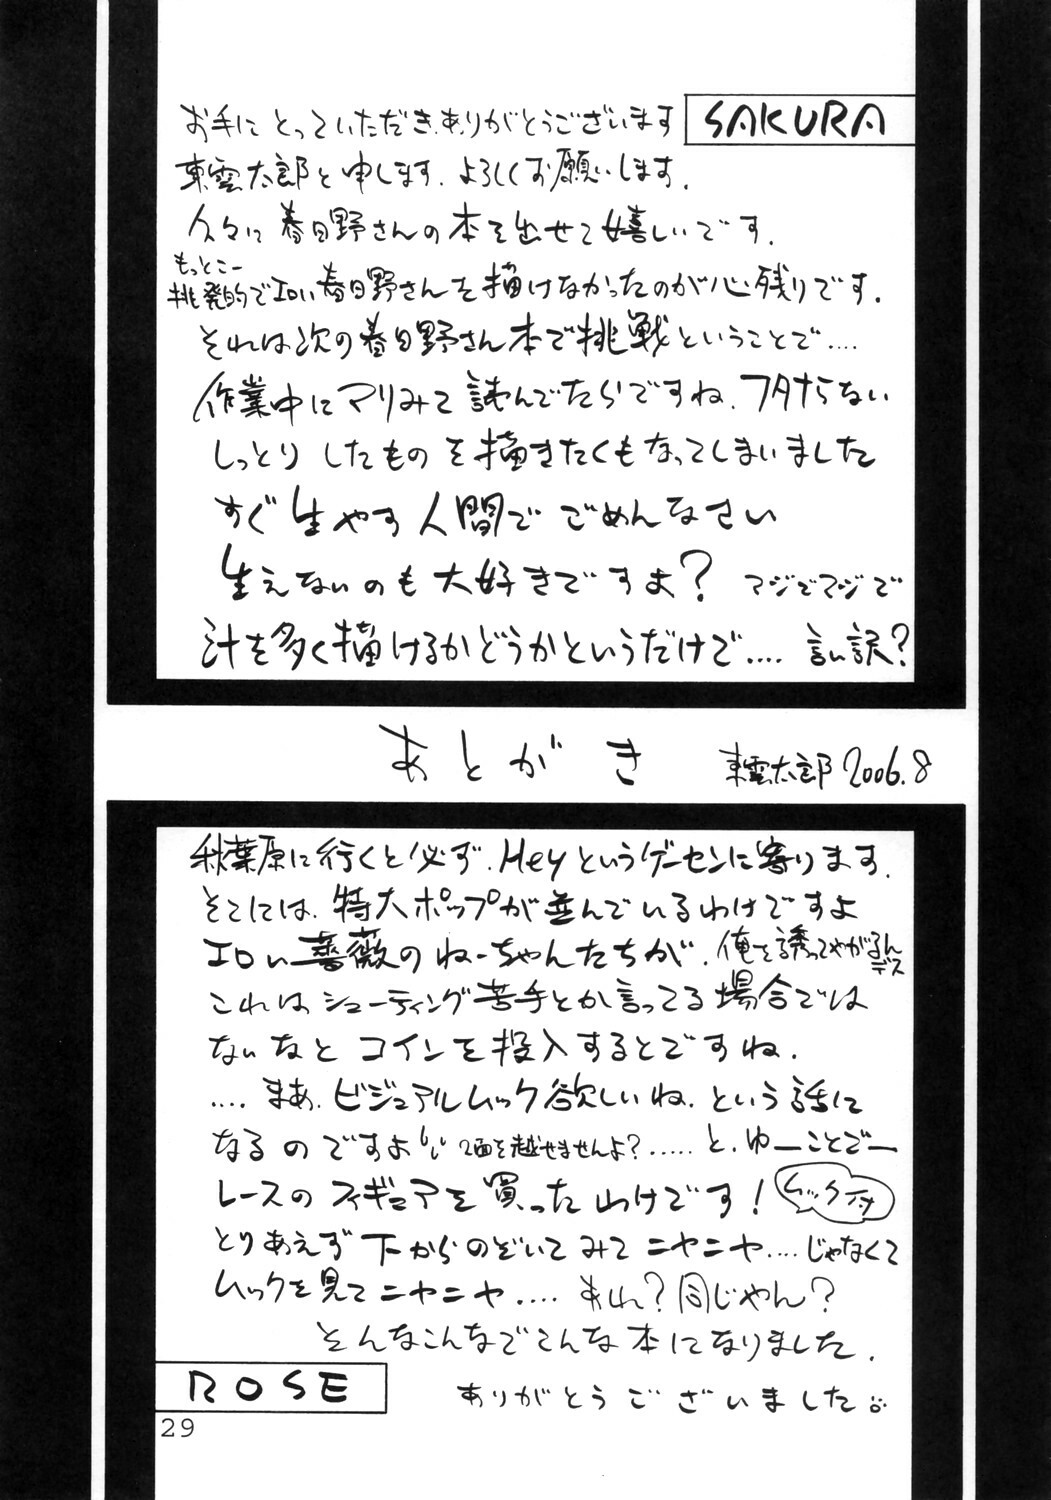 SAKURA
お手にとっていただき、ありがとうございます
東雲太郎と申します。よろしくお願いします。
久々に春日野さんの本を出せて嬉しいです。
もっとこー
挑発的でエロい春日野さんを描けなかったのが心残りです。
それは次の春日野さん本で挑戦ということで‥‥
作業中にマリみて読んでたらですね、フタナらない
しっとりしたものを描きたくもなってしまいました
すぐ生やす人間でごめんなさい
生えないのも大好きですよ？ マジでマジで
汁を多く描けるかどうかというだけで‥‥ 言い訳？
あとがき 東雲太郎 2006.8
秋葉原に行くと必ず、Heyというゲーセンに寄ります。
そこには、特大ポップが並んでいるわけですよ
エロい薔薇のねーちゃんたちが、俺を誘ってやがるんデス
これはシューティング苦手とか言ってる場合では
ないなと コインを投入するとですね、
‥‥まあ、ビジュアルムック欲しいね、という話に
なるのですよ 2面を越せませんよ？‥‥‥と、ゆーことでー
レースのフィギュアを買ったわけです！ ムック付
とりあえず下からのぞいてみてニヤニヤ‥‥じゃなくて
ムックを見てニヤニヤ‥‥ あれ？同じやん？
そんなこんなでこんな本になりました。
ROSE
ありがとうございました
29